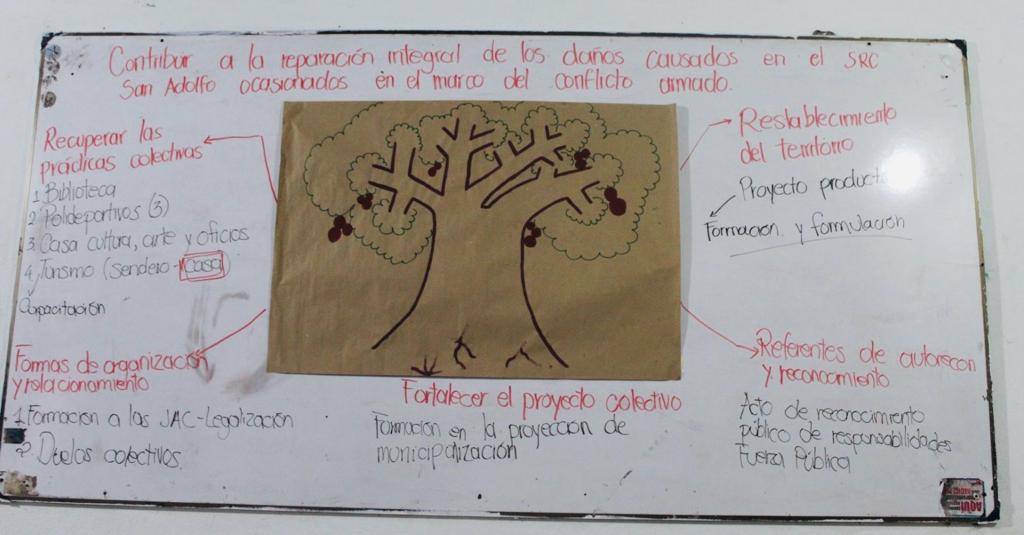 Contribuir a la reparación integral de los daños causados en el SRC
San Adolfo ocasionados en el marco del conflicto armado.
Recuperar las
prácticas colectivas
1 Biblioteca
2 Polideportivos (3)
3 Casa cultura, arte y oficios
4 Turismo (sendero - Casa)
Capacitación
Formas de organización
y relacionamiento
1 Formación a las JAC - Legalización
2 Duelos colectivos.
Fortalecer el proyecto colectivo
Formación en la proyección de
municipalización
Restablecimiento
del territorio
Proyecto product
Formación y formulación
Referentes de autorecon
y reconocimiento
Acto de reconocimiento
público de responsabilidades
Fuerza Pública
AQUÍ